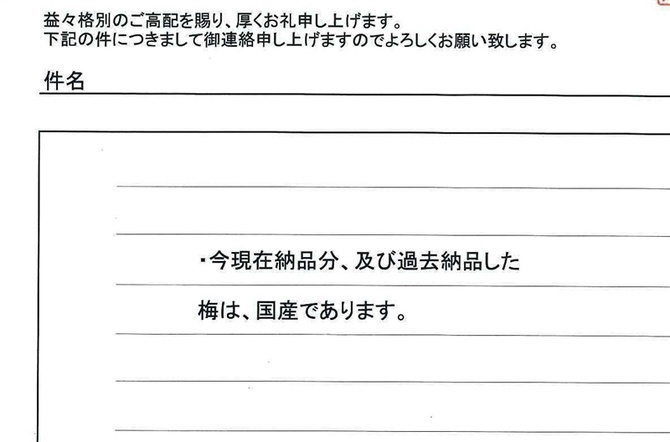 益々格別のご高配を賜り、厚くお礼申し上げます。
下記の件につきまして御連絡申し上げますのでよろしくお願い致します。
件名
・今現在納品分、及び過去納品した
梅は、国産であります。